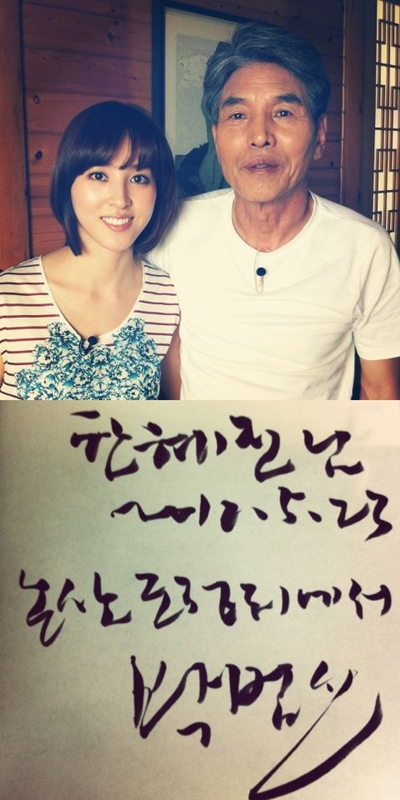 한혜진 님
2012. 5. 23
논산 조정리에서
박범신